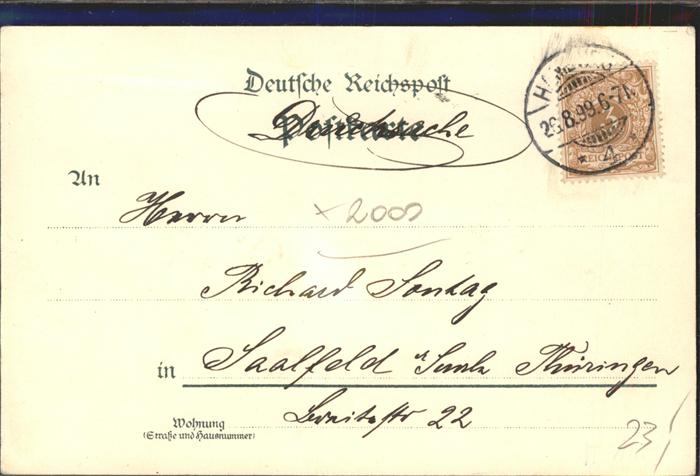 Deutsche Reichspost
Postkarte
Drucksache
26.8.99.6-7N.
* 4 *
REICHSPOST
An
Herrn
x2000
Richard Sontag
in Saalfeld Thüringen
Breitestr 22
Wohnung
(Straße und Hausnummer)
23